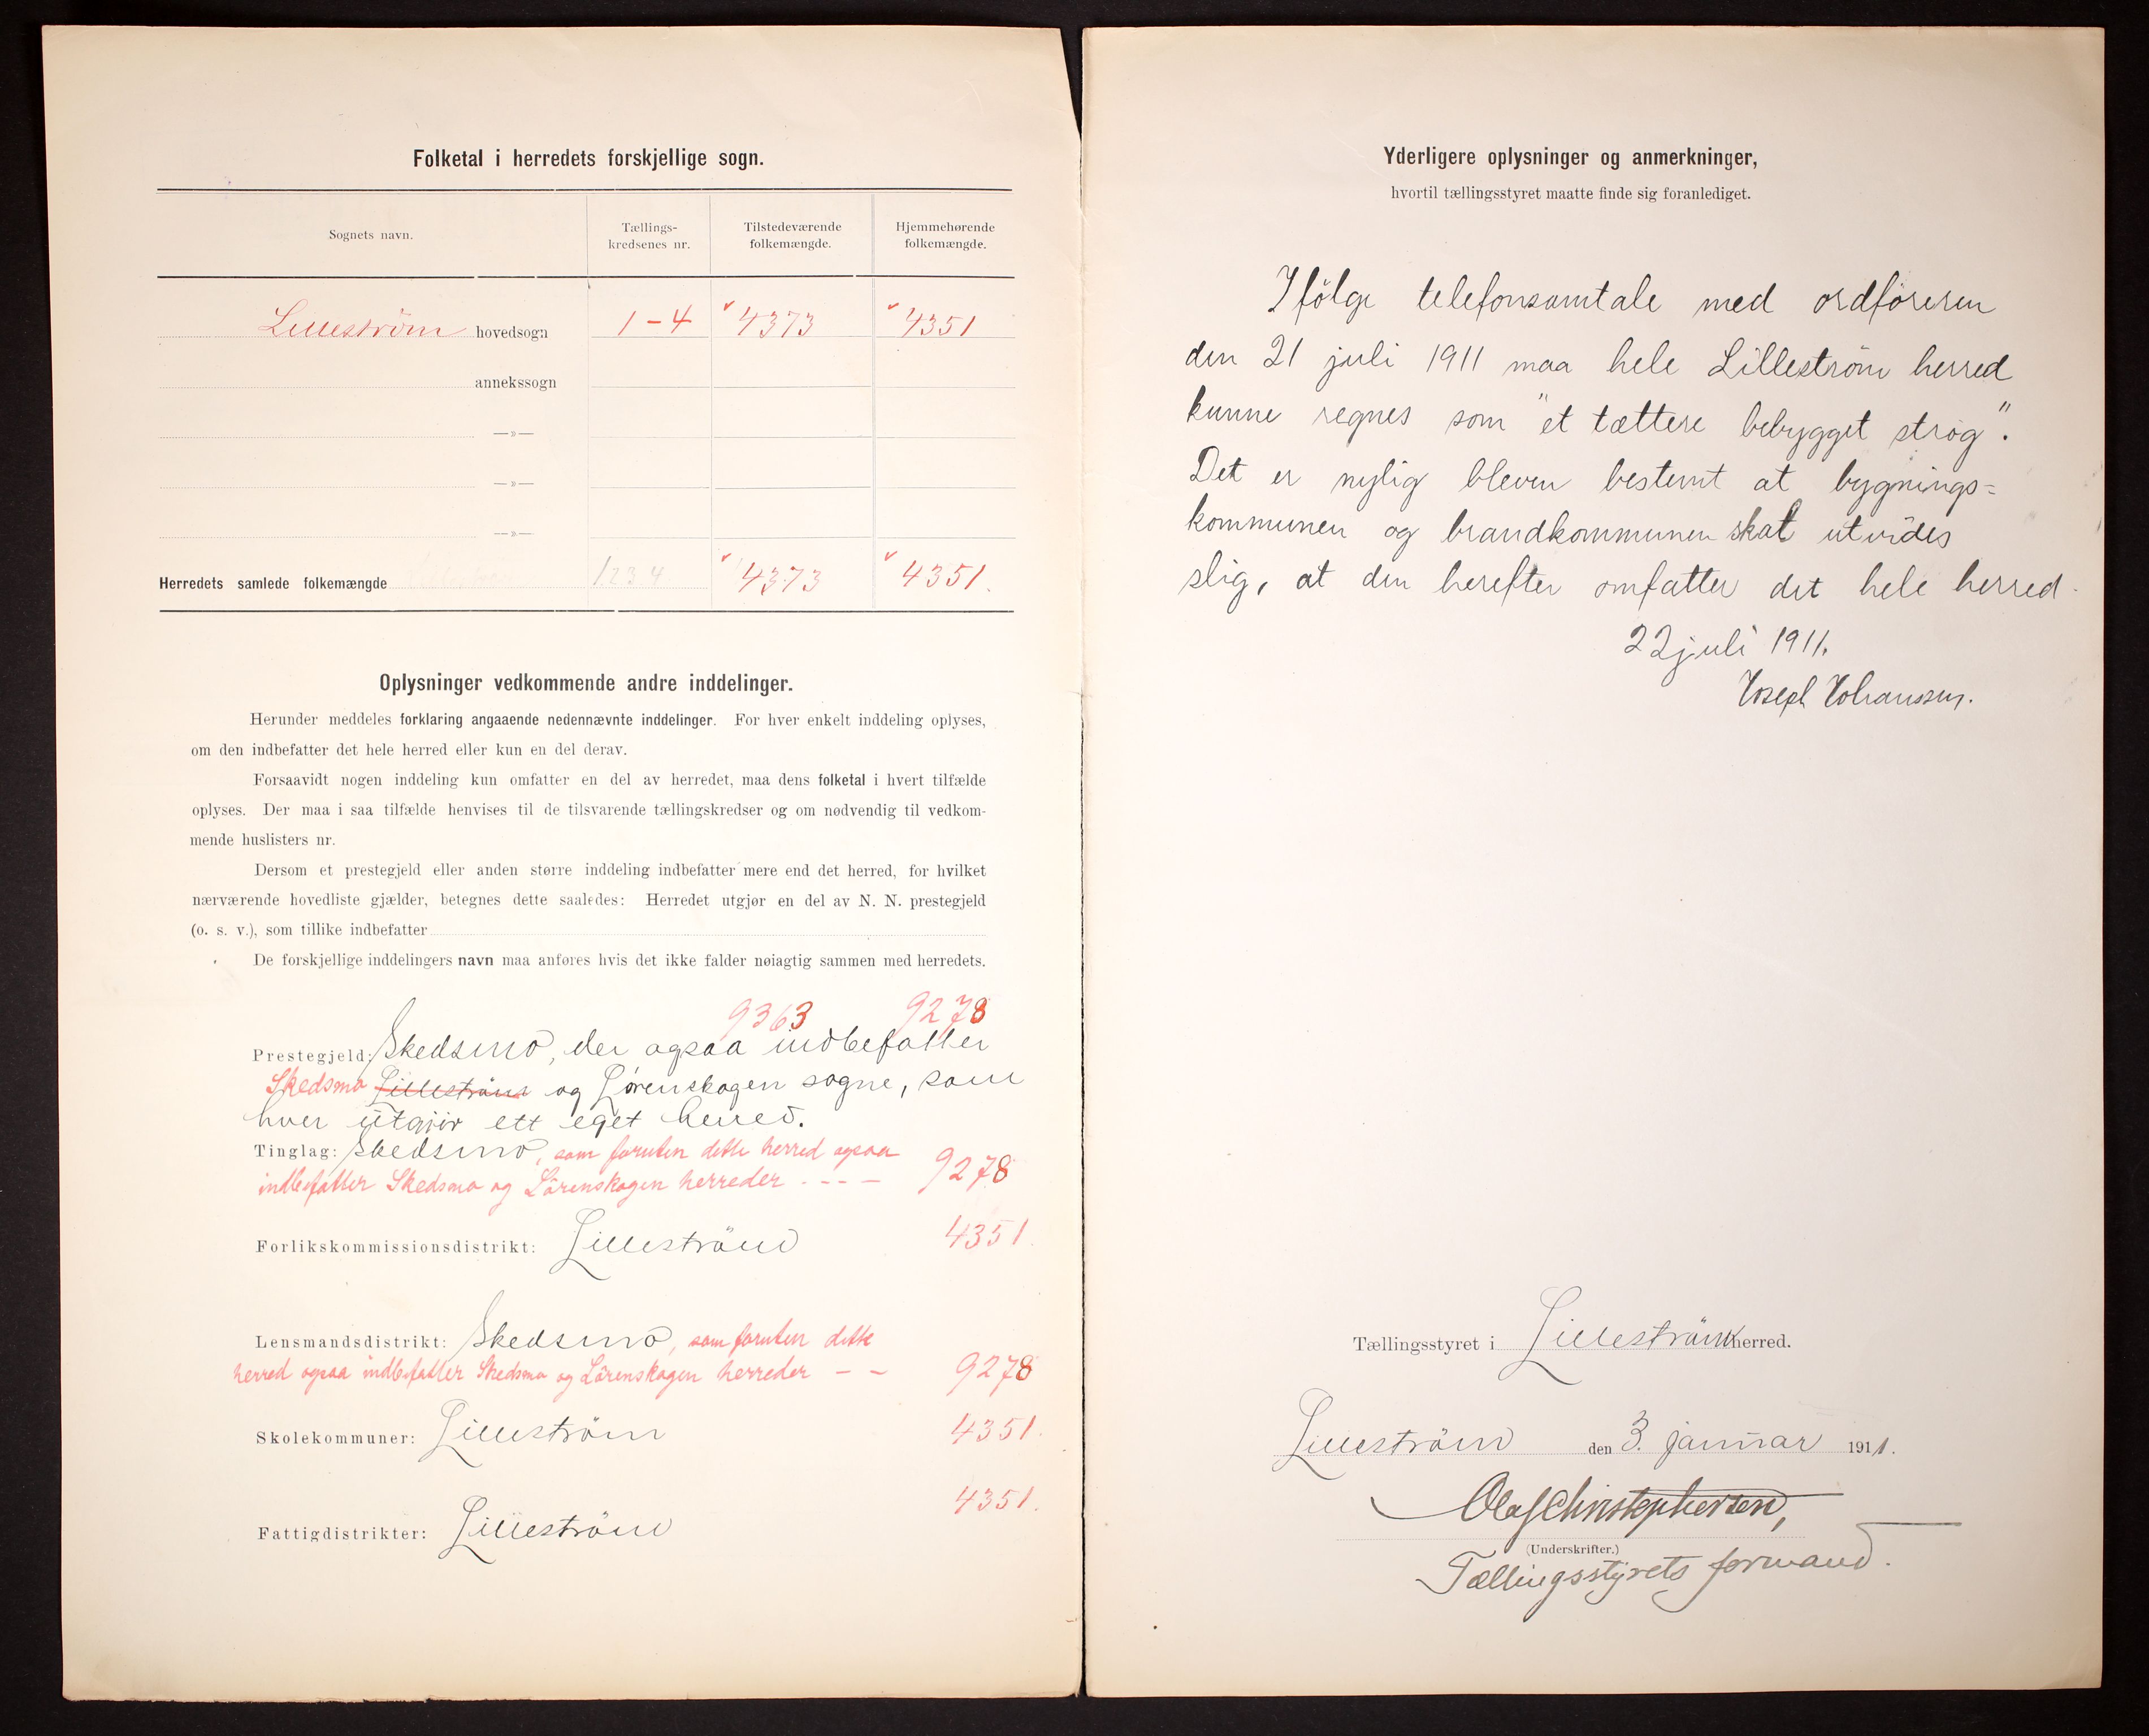 Folketal i herredets forskjellige sogn.
Sognets navn.
Tællings-
kredsenes nr.
Tilstedeværende
folkemængde.
Hjemmehørende
folkemængde.
Lilleström hovedsogn 1-4 4373 4351
annekssogn
—»—
—»—
—»—
Herredets samlede folkemængde 1234 4373 4351.
Oplysninger vedkommende andre inddelinger.
Herunder meddeles forklaring angaaende nedennævnte inddelinger. For hver enkelt inddeling oplyses,
om den indbefatter det hele herred eller kun en del derav.
Forsaavidt nogen inddeling kun omfatter en del av herredet, maa dens folketal i hvert tilfælde
oplyses. Der maa i saa tilfælde henvises til de tilsvarende tællingskredser og om nødvendig til vedkom-
mende huslisters nr.
Dersom et prestegjeld eller anden større inddeling indbefatter mere end det herred, for hvilket
nærværende hovedliste gjælder, betegnes dette saaledes: Herredet utgjør en del av N. N. prestegjeld
(o. s. v.), som tillike indbefatter
De forskjellige inddelingers navn maa anføres hvis det ikke falder nøiagtig sammen med herredets.
9363 9278
Prestegjeld: Skedsmo, der ogsaa indbefatter
Skedsmo Lilleström og Lørenskogen sogne, som
hver utgjör ett eget herred.
Tinglag: Skedsmo, som foruten dette herred ogsaa
indbefatter Skedsmo og Lörenskogen herreder - - - - 9278
Forlikskommissionsdistrikt: Lilleström 4351.
Lensmandsdistrikt: Skedsmo, som foruten dette
herred ogsaa indbefatter Skedsmo og Lörenskogen herreder - - 9278
Skolekommuner: Lilleström 4351.
4351.
Fattigdistrikter: Lilleström
Yderligere oplysninger og anmerkninger,
hvortil tællingsstyret maatte finde sig foranlediget.
Ifölge telefonsamtale med ordföreren
den 21 juli 1911 maa hele Lilleström herred
kunne regnes som "et tættere bebygget strög".
Det er nylig bleven bestemt at bygnings=
kommunen og brandkommunen skal utvides
slig, at den herefter omfatter det hele herred.
22 juli 1911.
Joseph Johanssen.
Tællingsstyret i Lilleström herred.
Lilleström den 3. januar 1911.
Olaf Christophersen,
(Underskrifter.)
Tællingsstyrets formand.